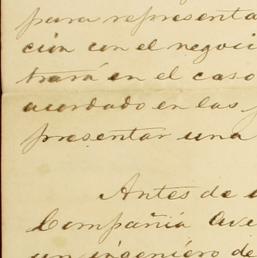 para representa
ción con el negoci
trará en el caso
acordado en las
presentar una
Antes de
Compañía Ave
un ingeniero de